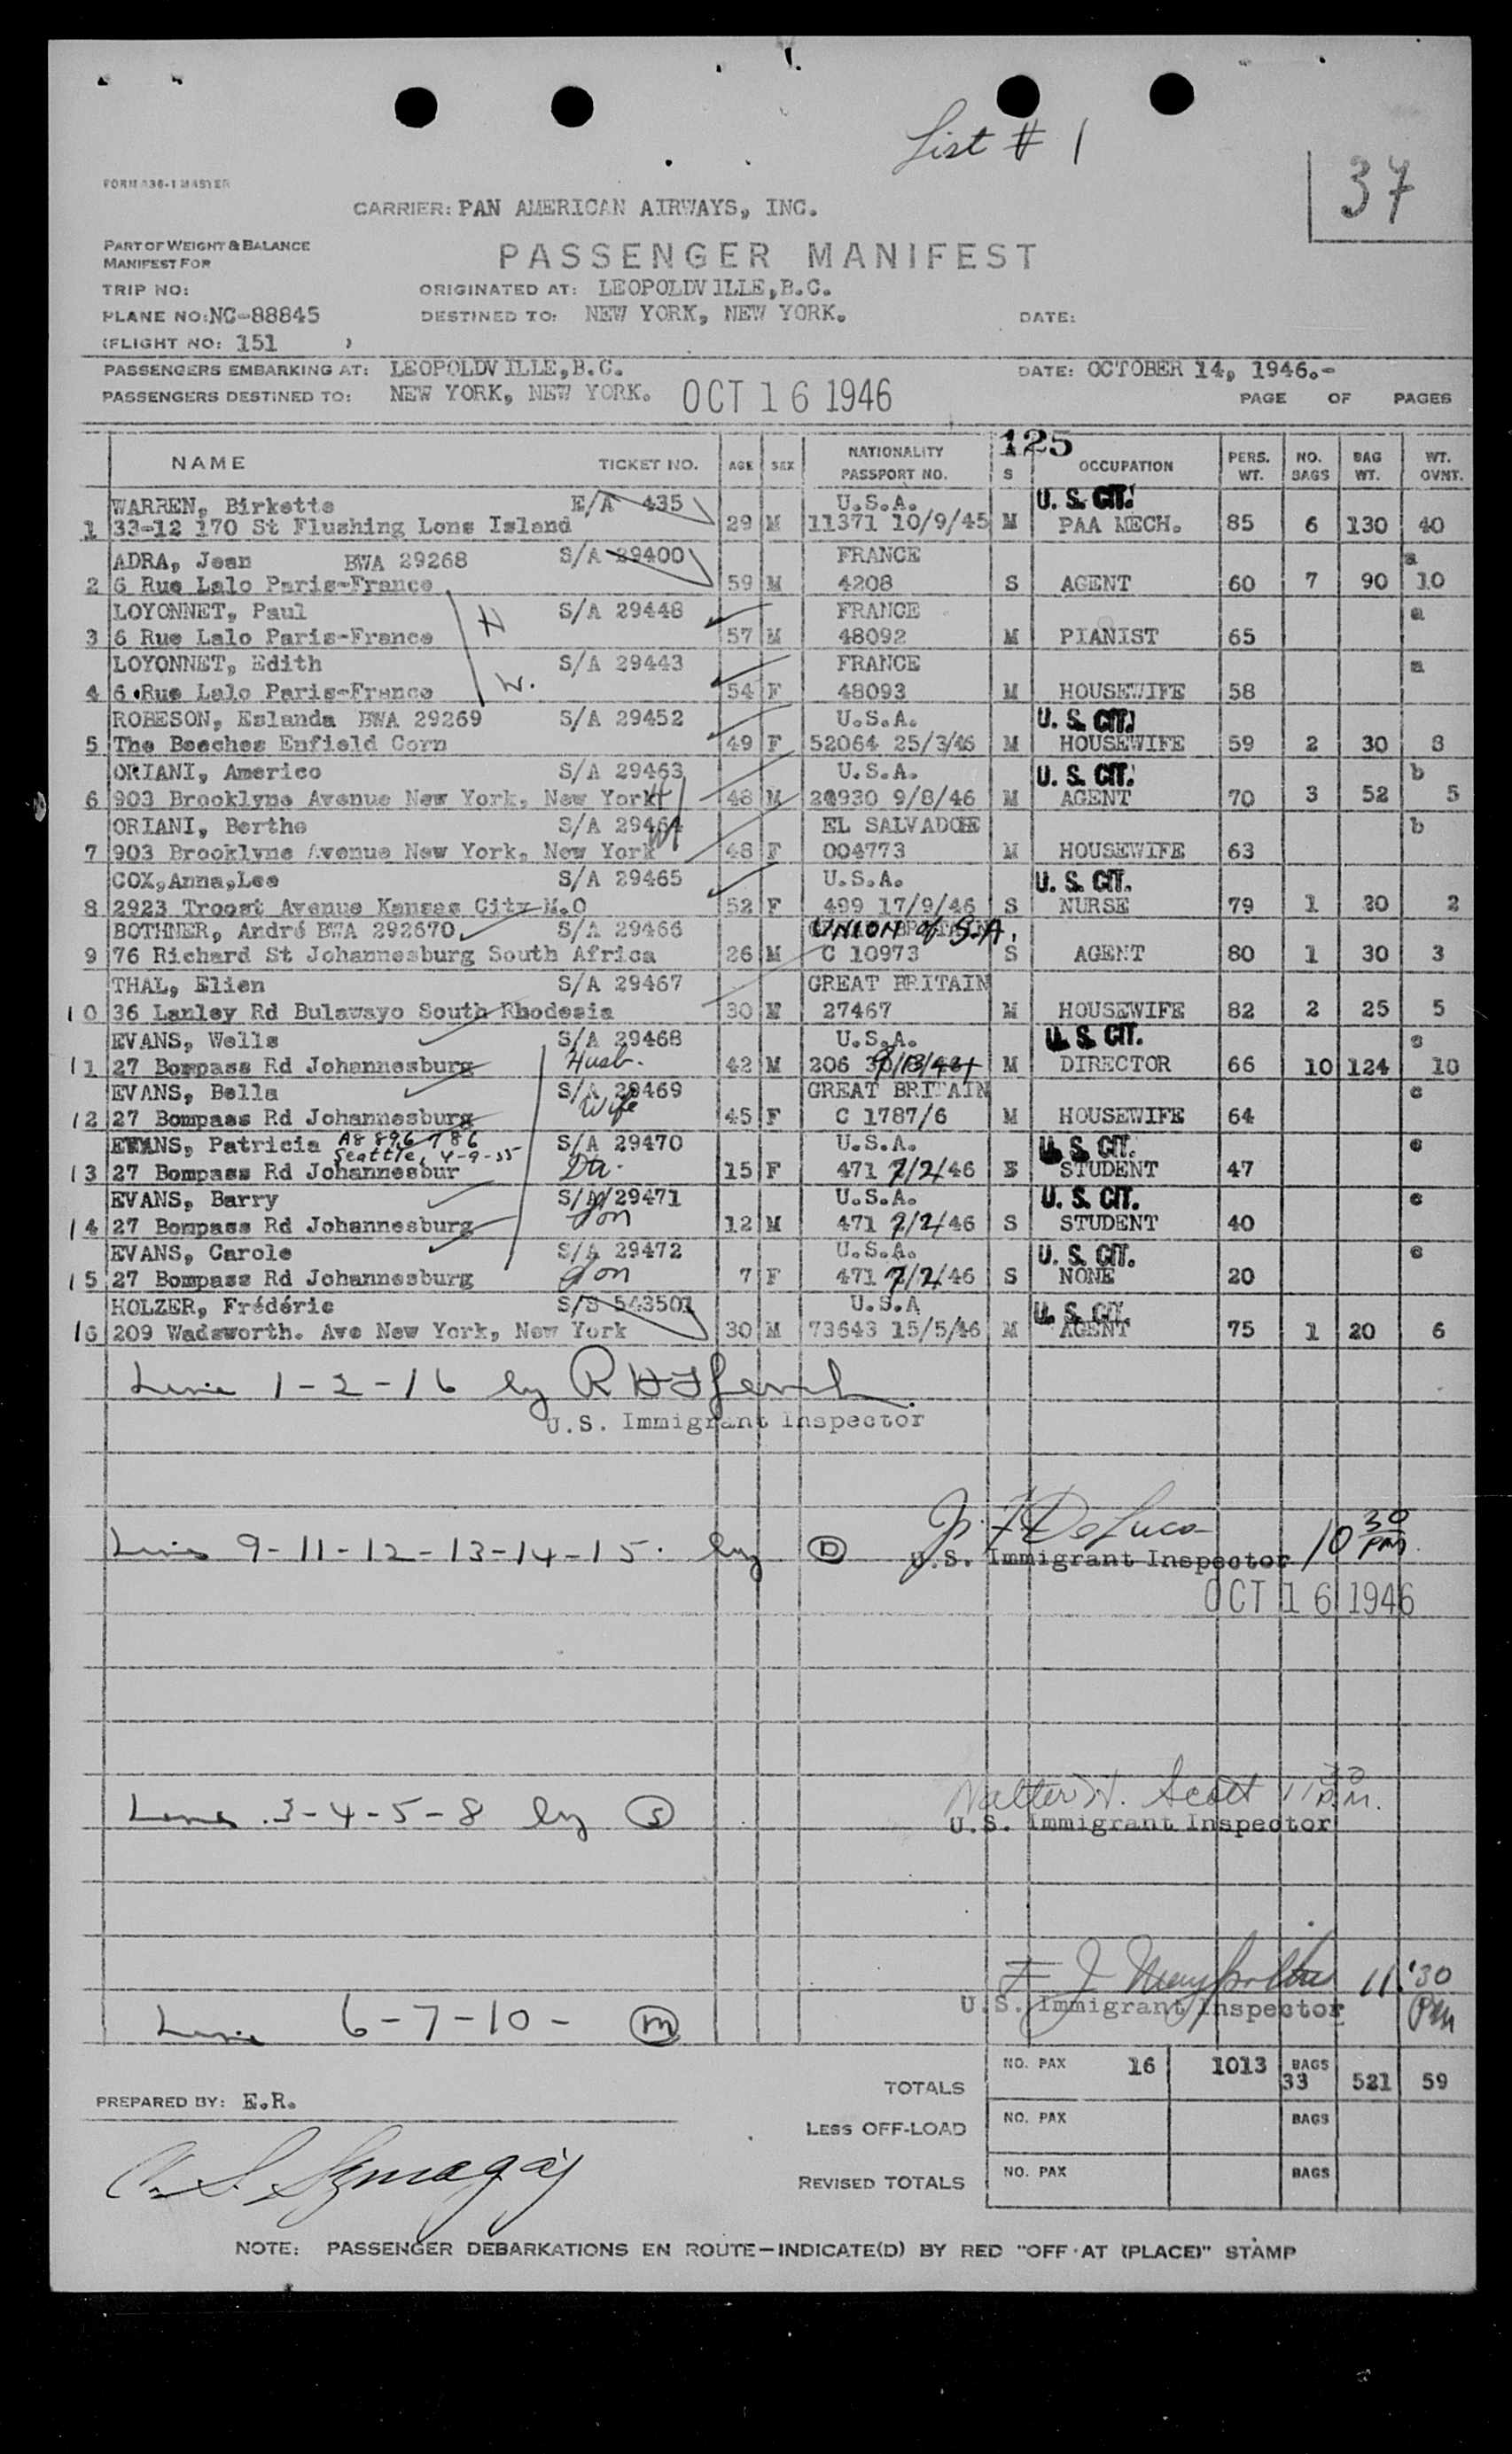 List # 1
37
FORM 136-1 MASTER
CARRIER: PAN AMERICAN AIRWAYS, INC.
PART OF WEIGHT & BALANCE
MANIFEST FOR
PASSENGER MANIFEST
TRIP NO:
ORIGINATED AT: LEOPOLDVILLE,B.C.
PLANE NO: NC-88845
DESTINED TO: NEW YORK, NEW YORK.
DATE:
(FLIGHT NO: 151 )
PASSENGERS EMBARKING AT: LEOPOLDVILLE,B.C.
DATE: OCTOBER 14, 1946.-
PASSENGERS DESTINED TO: NEW YORK, NEW YORK. OCT 16 1946
PAGE OF PAGES
125
NAME TICKET NO. AGE SEX NATIONALITY PASSPORT NO. S OCCUPATION PERS. WT. NO. BAGS BAG WT. WT. OVNT.
WARREN, Birkette E/A 435 U.S.A. U. S. CIT.
1 33-12 170 St Flushing Lons Island 29 M 11371 10/9/45 M PAA MECH. 85 6 130 40
ADRA, Jean BWA 29268 S/A 29400 FRANCE a
2 6 Rue Lalo Paris-France 59 M 4208 S AGENT 60 7 90 10
LOYONNET, Paul H S/A 29448 FRANCE a
3 6 Rue Lalo Paris-France 57 M 48092 M PIANIST 65
LOYONNET, Edith S/A 29443 FRANCE a
4 6 Rue Lalo Paris-France W. 54 F 48093 M HOUSEWIFE 58
ROBESON, Eslanda BWA 29269 S/A 29452 U.S.A. U. S. CIT.
5 The Beeches Enfield Corn 49 F 52064 25/3/46 M HOUSEWIFE 59 2 30 8
ORIANI, Americo S/A 29463 U.S.A. U. S. CIT. b
6 903 Brooklyne Avenue New York, New York H 48 M 9/8/46 M AGENT 70 3 52 5
ORIANI, Berthe S/A 29464 EL SALVADOR b
7 903 Brooklyne Avenue New York, New York W 48 F 004773 M HOUSEWIFE 63
COX,Anna,Lee S/A 29465 U.S.A. U. S. CIT.
8 2923 Troost Avenue Kansas City M.O 52 F 499 17/9/46 S NURSE 79 1 30 2
BOTHNER, André BWA 292670 S/A 29466 UNION of S.A.
9 76 Richard St Johannesburg South Africa 26 M C 10973 S AGENT 80 1 30 3
THAL, Elien S/A 29467 GREAT BRITAIN
10 36 Lanley Rd Bulawayo South Rhodesia 30 M 27467 M HOUSEWIFE 82 2 25 5
EVANS, Wells S/A 29468 U.S.A. U. S. CIT. c
11 27 Bompass Rd Johannesburg Husb. 42 M 206 M DIRECTOR 66 10 124 10
EVANS, Bella S/A 29469 GREAT BRITAIN c
12 27 Bompass Rd Johannesburg Wife 45 F C 1787/6 M HOUSEWIFE 64
EVANS, Patricia A8 896 786 S/A 29470 U.S.A. U. S. CIT. c
Seattle, 4-9-55
13 27 Bompass Rd Johannesbur Da. 15 F 471 2/2/46 S STUDENT 47
EVANS, Barry S/A 29471 U.S.A. U. S. CIT. c
14 27 Bompass Rd Johannesburg Son 12 M 471 2/2/46 S STUDENT 40
EVANS, Carole S/A 29472 U.S.A. U. S. CIT. c
15 27 Bompass Rd Johannesburg Son 7 F 471 2/2/46 S NONE 20
HOLZER, Frédéric S/S 543501 U.S.A U. S. CIT.
16 209 Wadsworth. Ave New York, New York 30 M 73643 15/5/46 M AGENT 75 1 20 6
Line 1-2-16 by
U.S. Immigrant Inspector
J. F. DeLuca
Lines 9-11-12-13-14-15. by D U.S. Immigrant Inspector 10 30 PM.
OCT 16 1946
Walter H. Scott 11 30 P.M.
Lines 3-4-5-8 by S U.S. Immigrant Inspector
F J 11:30 PM
U.S. Immigrant Inspector
Line 6-7-10- M
TOTALS NO. PAX 16 1013 BAGS 33 521 59
PREPARED BY: E.R.
LESS OFF-LOAD NO. PAX BAGS
REVISED TOTALS NO. PAX BAGS
NOTE: PASSENGER DEBARKATIONS EN ROUTE—INDICATE(D) BY RED "OFF AT (PLACE)" STAMP